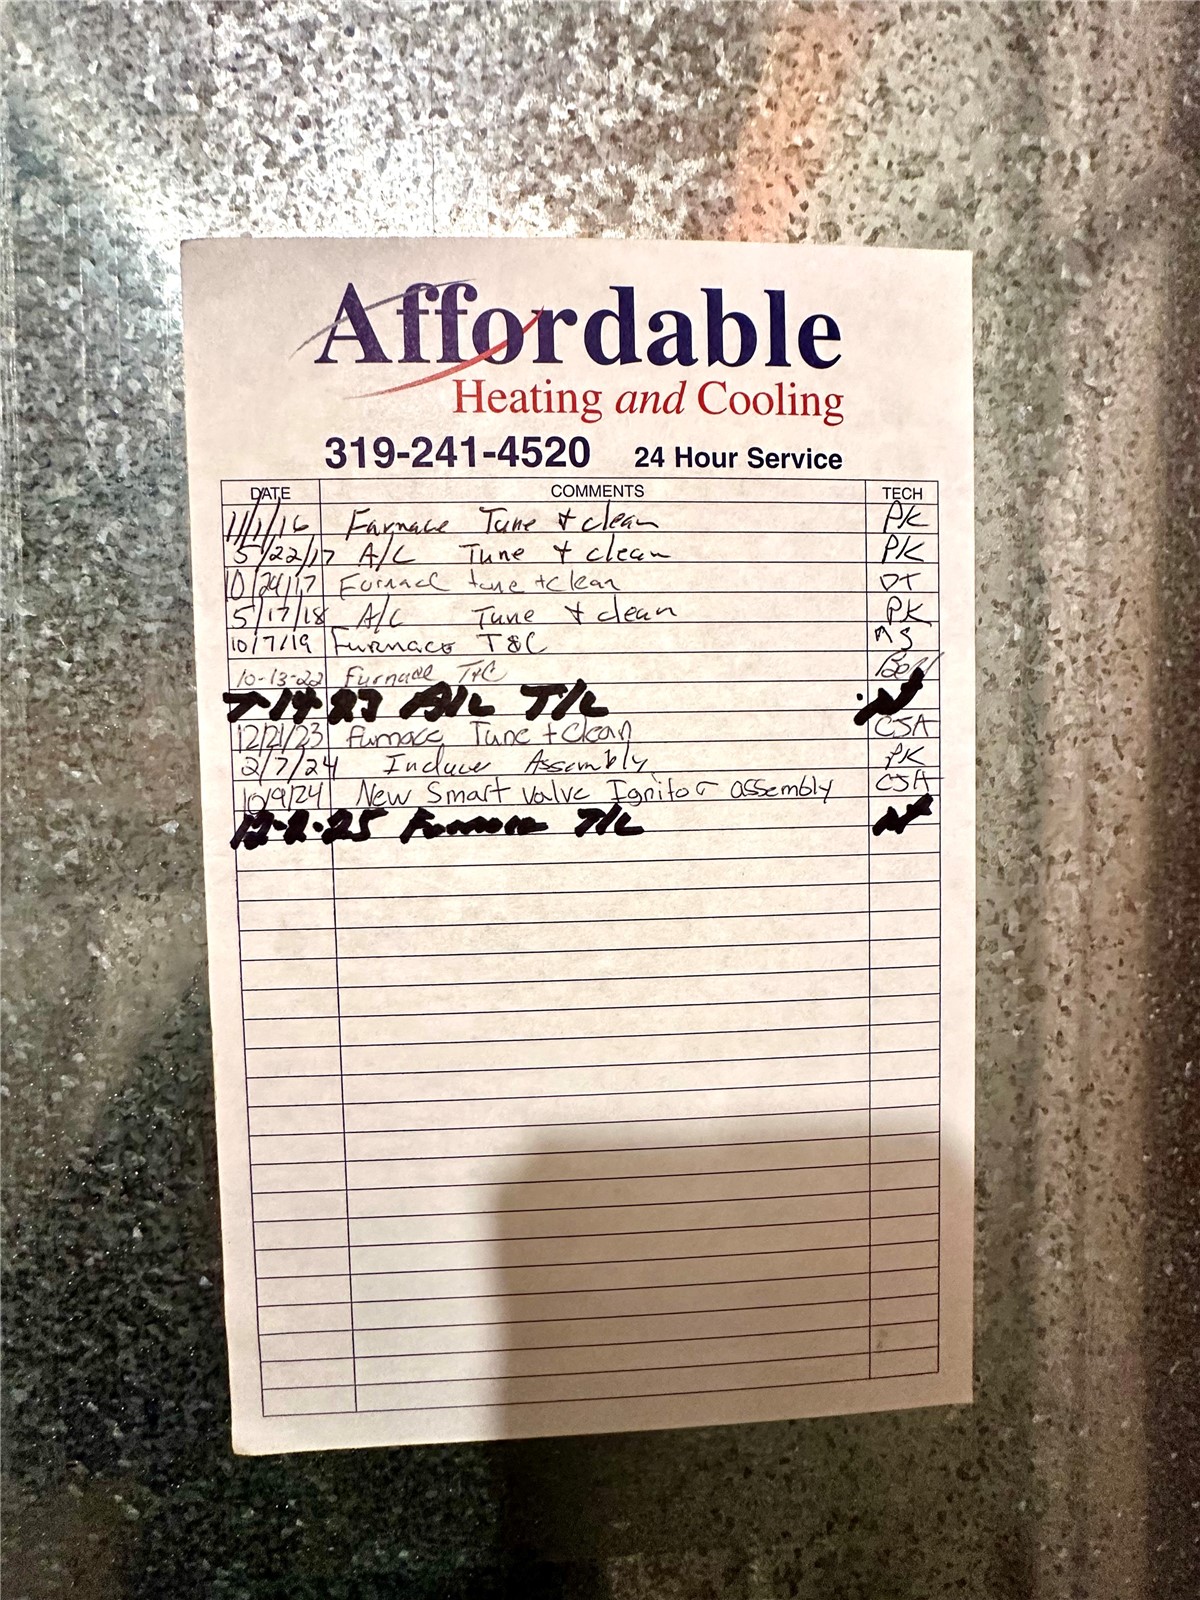 Affordable
Heating and Cooling
319-241-4520 24 Hour Service
DATE COMMENTS TECH
11/1/16 Farnace Tune + clean PK
5/22/17 A/C Tune + clean PK
10/24/17 Furnace tune + clean DT
5/17/18 A/C Tune + clean PK
10/7/19 Furnace T&C
10-13-22 Furnace T+C Ben
A/C T/C
12/21/23 Furnace Tune + Clean CSA
2/7/24 Inducer Assembly PK
10/9/24 New Smart valve Ignitor assembly CSA
12-2-25 Furnace T/C